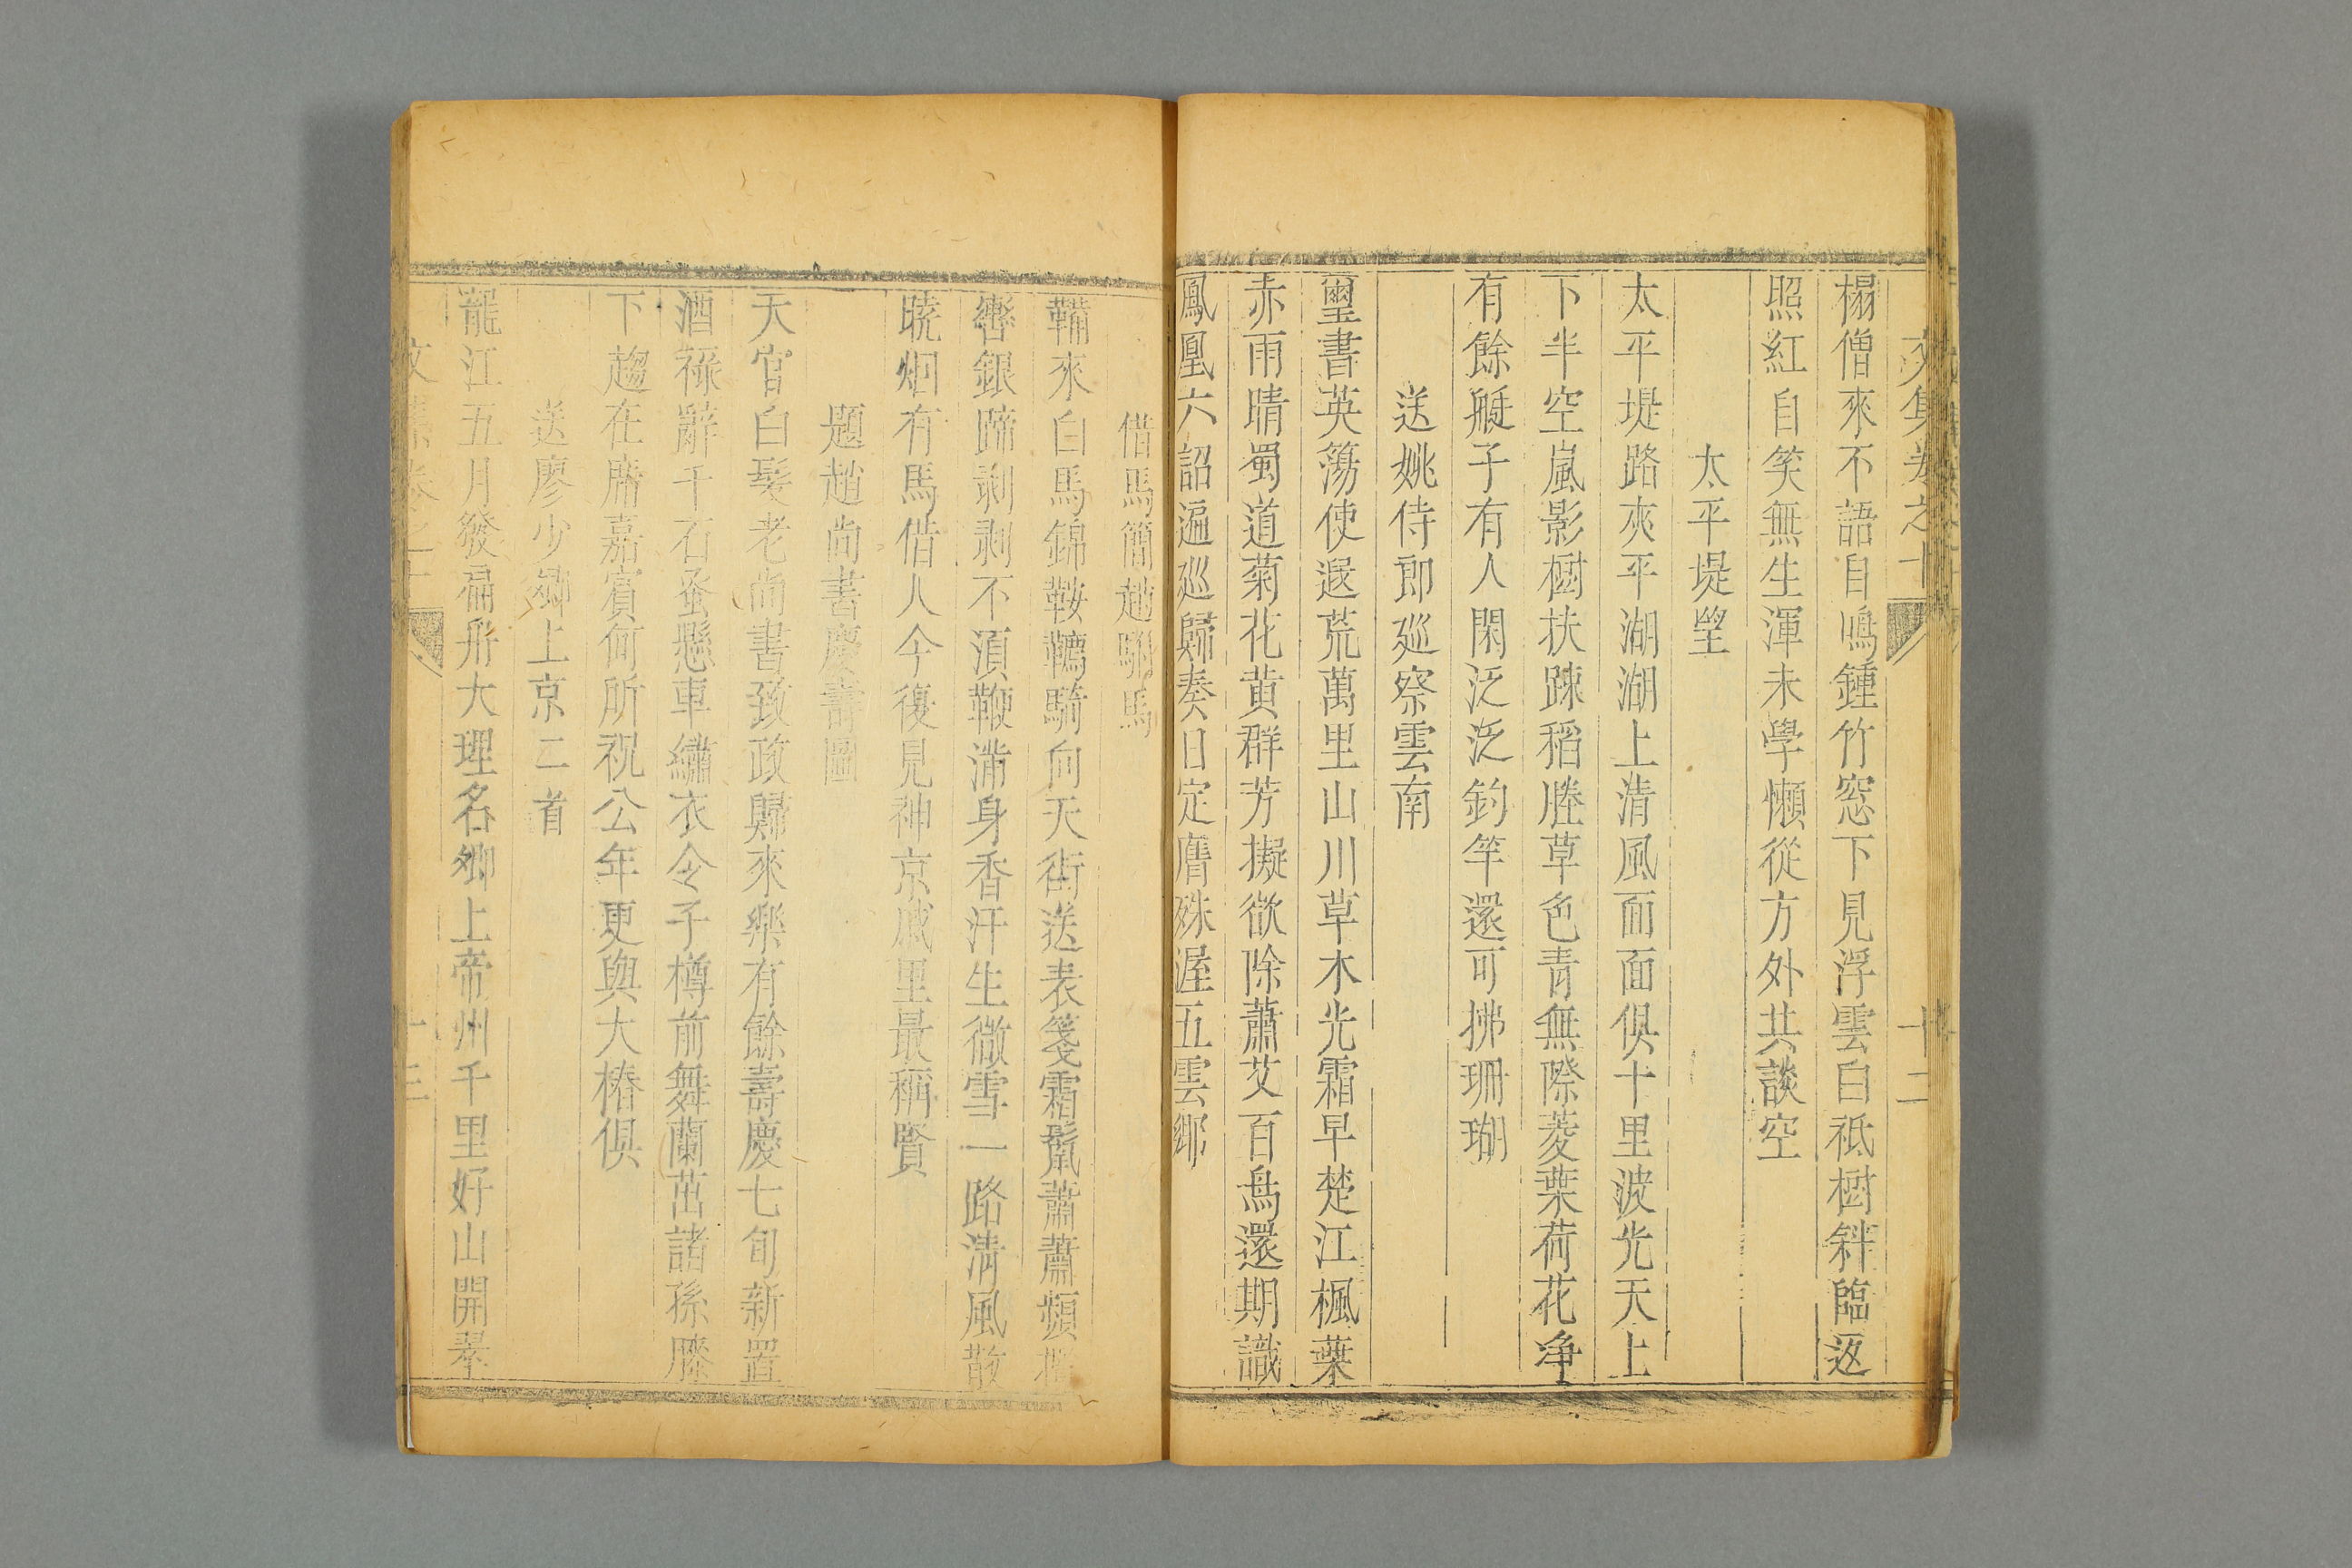 文集卷之十 十二
榻僧來不語自鳴鍾竹窓下見浮雲白祗樹斜臨返
照紅自笑無生渾未學懶從方外共談空
太平堤望
太平堤路夾平湖湖上清風面面俱十里波光天上
下半空嵐影樹扶踈稻塍草色青無際菱葉荷花净
有餘艇子有人閑泛泛釣竿還可拂珊瑚
送姚侍郎廵察雲南
璽書英蕩使遐荒萬里山川草木光霜早楚江楓葉
赤雨晴蜀道菊花黄群芳擬欲除蕭艾百鳥還期識
鳳凰六詔遍廵歸奏日定膺殊渥五雲鄉
借馬簡趙駙馬
鞴來白馬錦鞍韉騎向天街送表箋霜鬣蕭蕭頻
轡銀蹄剥剥不湏鞭滿身香汗生微雪一路清風散
曉烟有馬借人今復見神京戚里最稱賢
題趙尚書慶壽圖
天官白髮老尚書致政歸來樂有餘壽慶七旬新置
酒祿辭千石蚤懸車繡衣令子樽前舞蘭茁諸孫膝
下趨在席嘉賓何所祝公年更與大椿俱
送廖少卿上京二首
龍江五月發扁舟大理名卿上帝州千里好山開翠
文集卷之十 十三